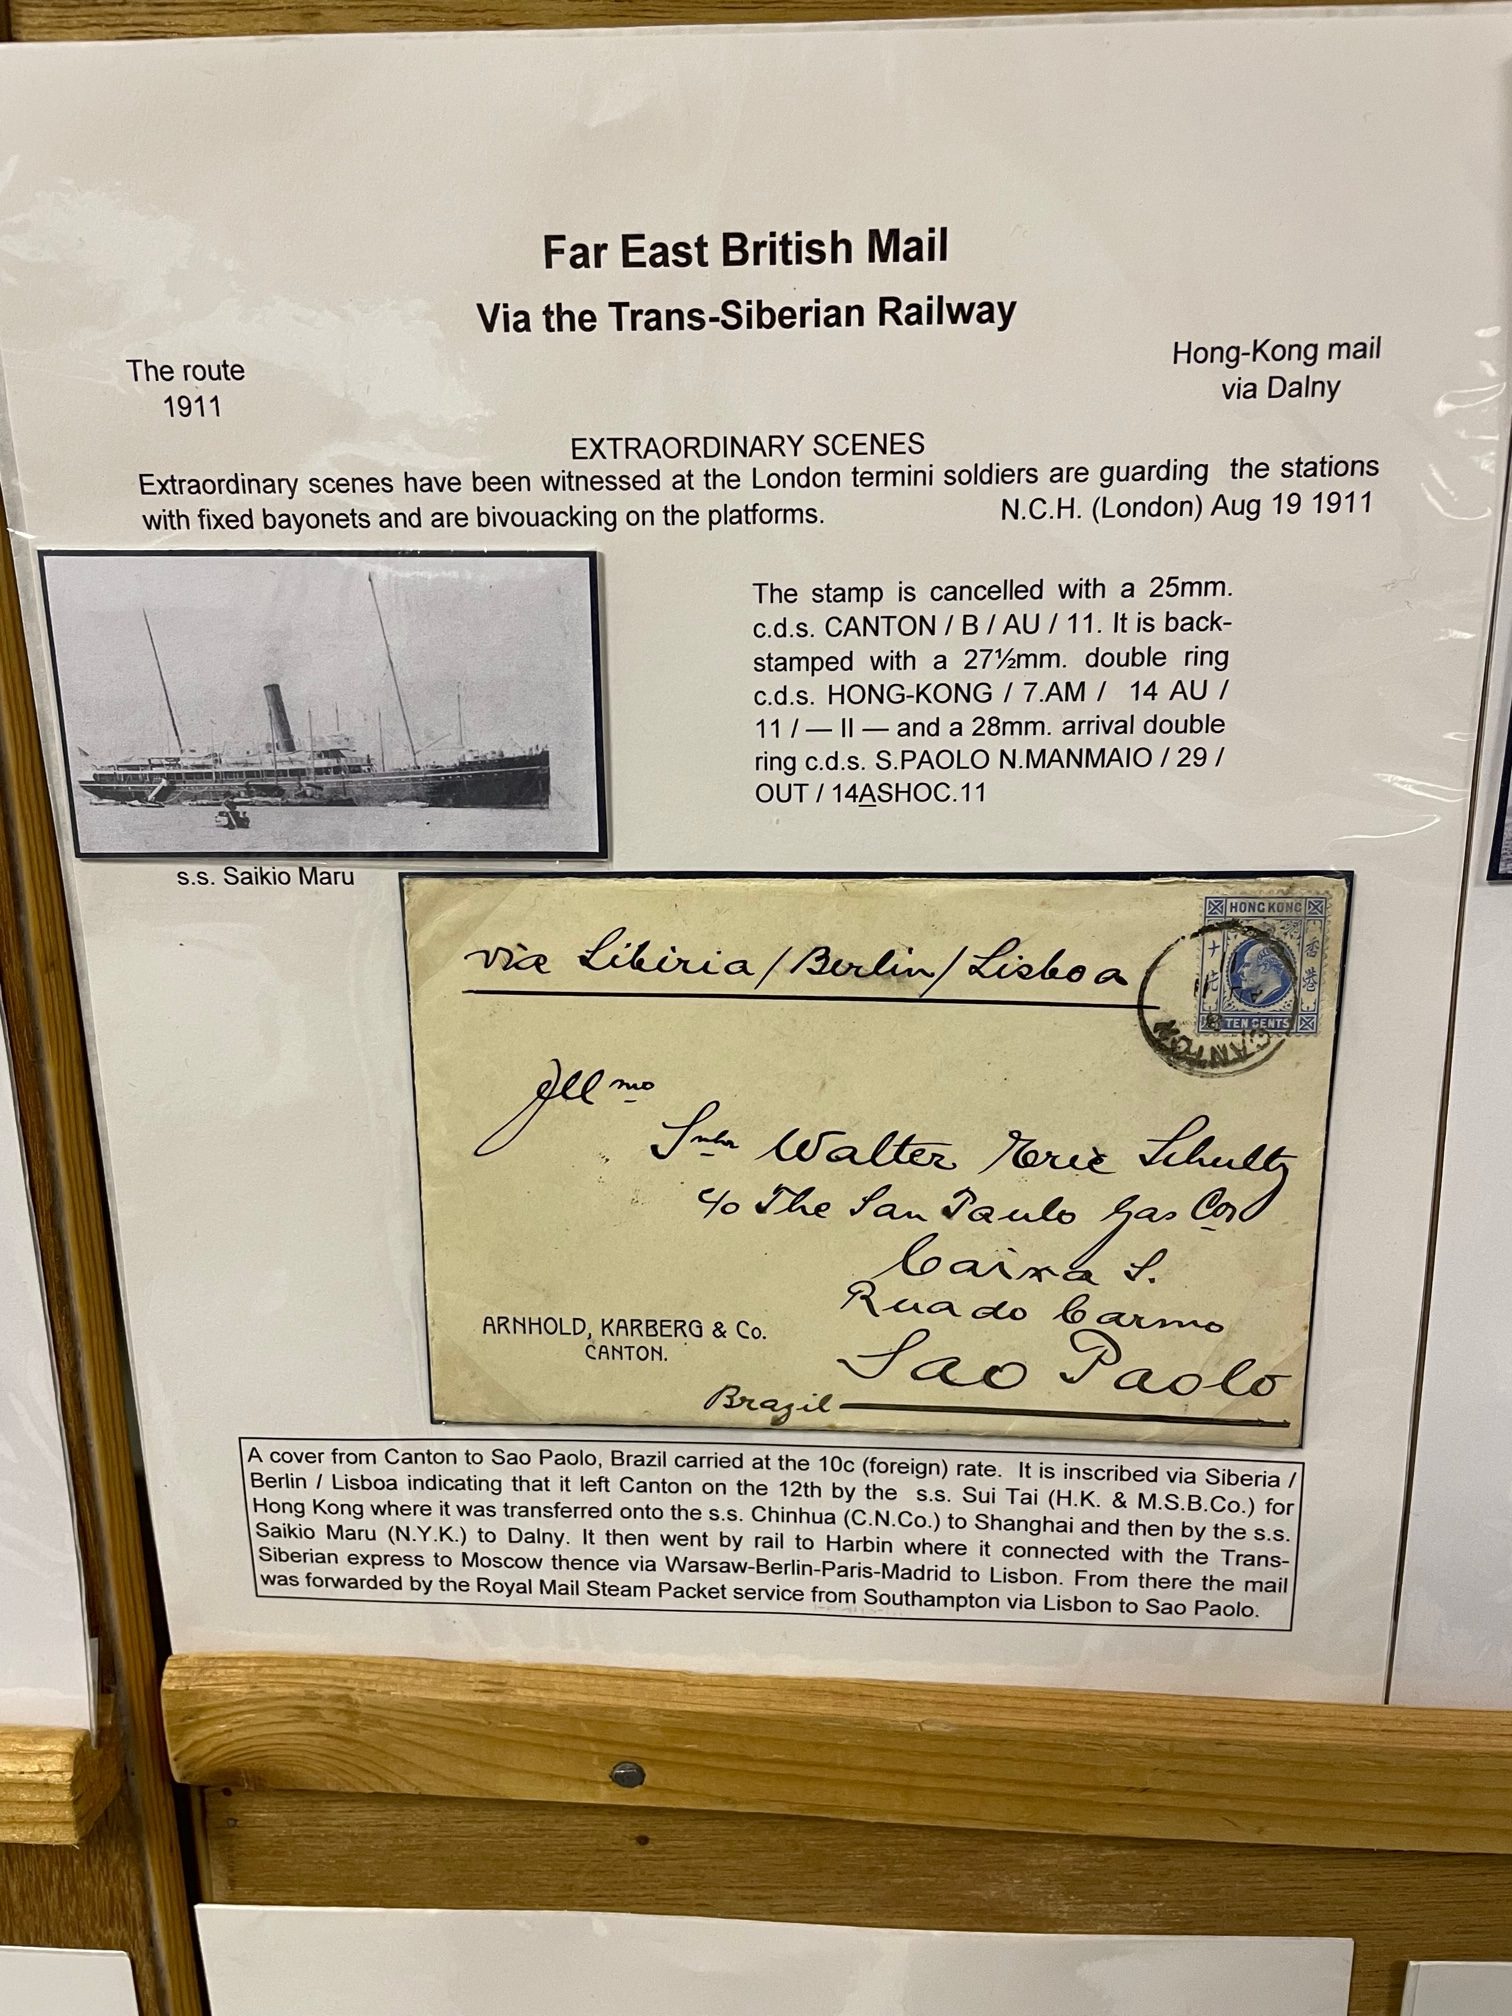 Far East British Mail
Via the Trans-Siberian Railway
The route
1911
Hong-Kong mail
via Dalny
EXTRAORDINARY SCENES
Extraordinary scenes have been witnessed at the London termini soldiers are guarding the stations
with fixed bayonets and are bivouacking on the platforms. N.C.H. (London) Aug 19 1911
s.s. Saikio Maru
The stamp is cancelled with a 25mm.
c.d.s. CANTON / B / AU / 11. It is back-
stamped with a 27½mm. double ring
c.d.s. HONG-KONG / 7.AM / 14 AU /
11 / — II — and a 28mm. arrival double
ring c.d.s. S.PAOLO N.MANMAIO / 29 /
OUT / 14ASHOC.11
via Sibiria / Berlin / Lisboa
HONG KONG
十
香港
TEN CENTS
CANTON
Illmo
Snhr Walter Eric Schultz
c/o The San Paulo Gas Co
Caixa S.
Rua do Carmo
Sao Paolo
Brazil
ARNHOLD, KARBERG & Co.
CANTON.
A cover from Canton to Sao Paolo, Brazil carried at the 10c (foreign) rate. It is inscribed via Siberia /
Berlin / Lisboa indicating that it left Canton on the 12th by the s.s. Sui Tai (H.K. & M.S.B.Co.) for
Hong Kong where it was transferred onto the s.s. Chinhua (C.N.Co.) to Shanghai and then by the s.s.
Saikio Maru (N.Y.K.) to Dalny. It then went by rail to Harbin where it connected with the Trans-
Siberian express to Moscow thence via Warsaw-Berlin-Paris-Madrid to Lisbon. From there the mail
was forwarded by the Royal Mail Steam Packet service from Southampton via Lisbon to Sao Paolo.